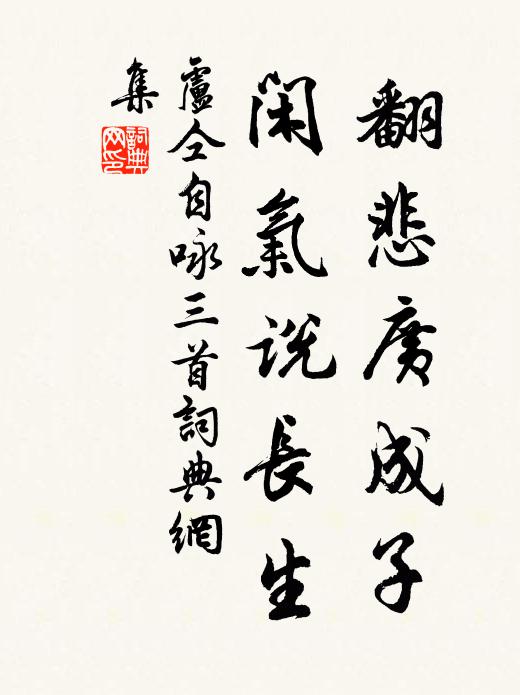 翻悲廣成子
閑氣說長生
盧仝自咏三首詞典網
集
詞典网印